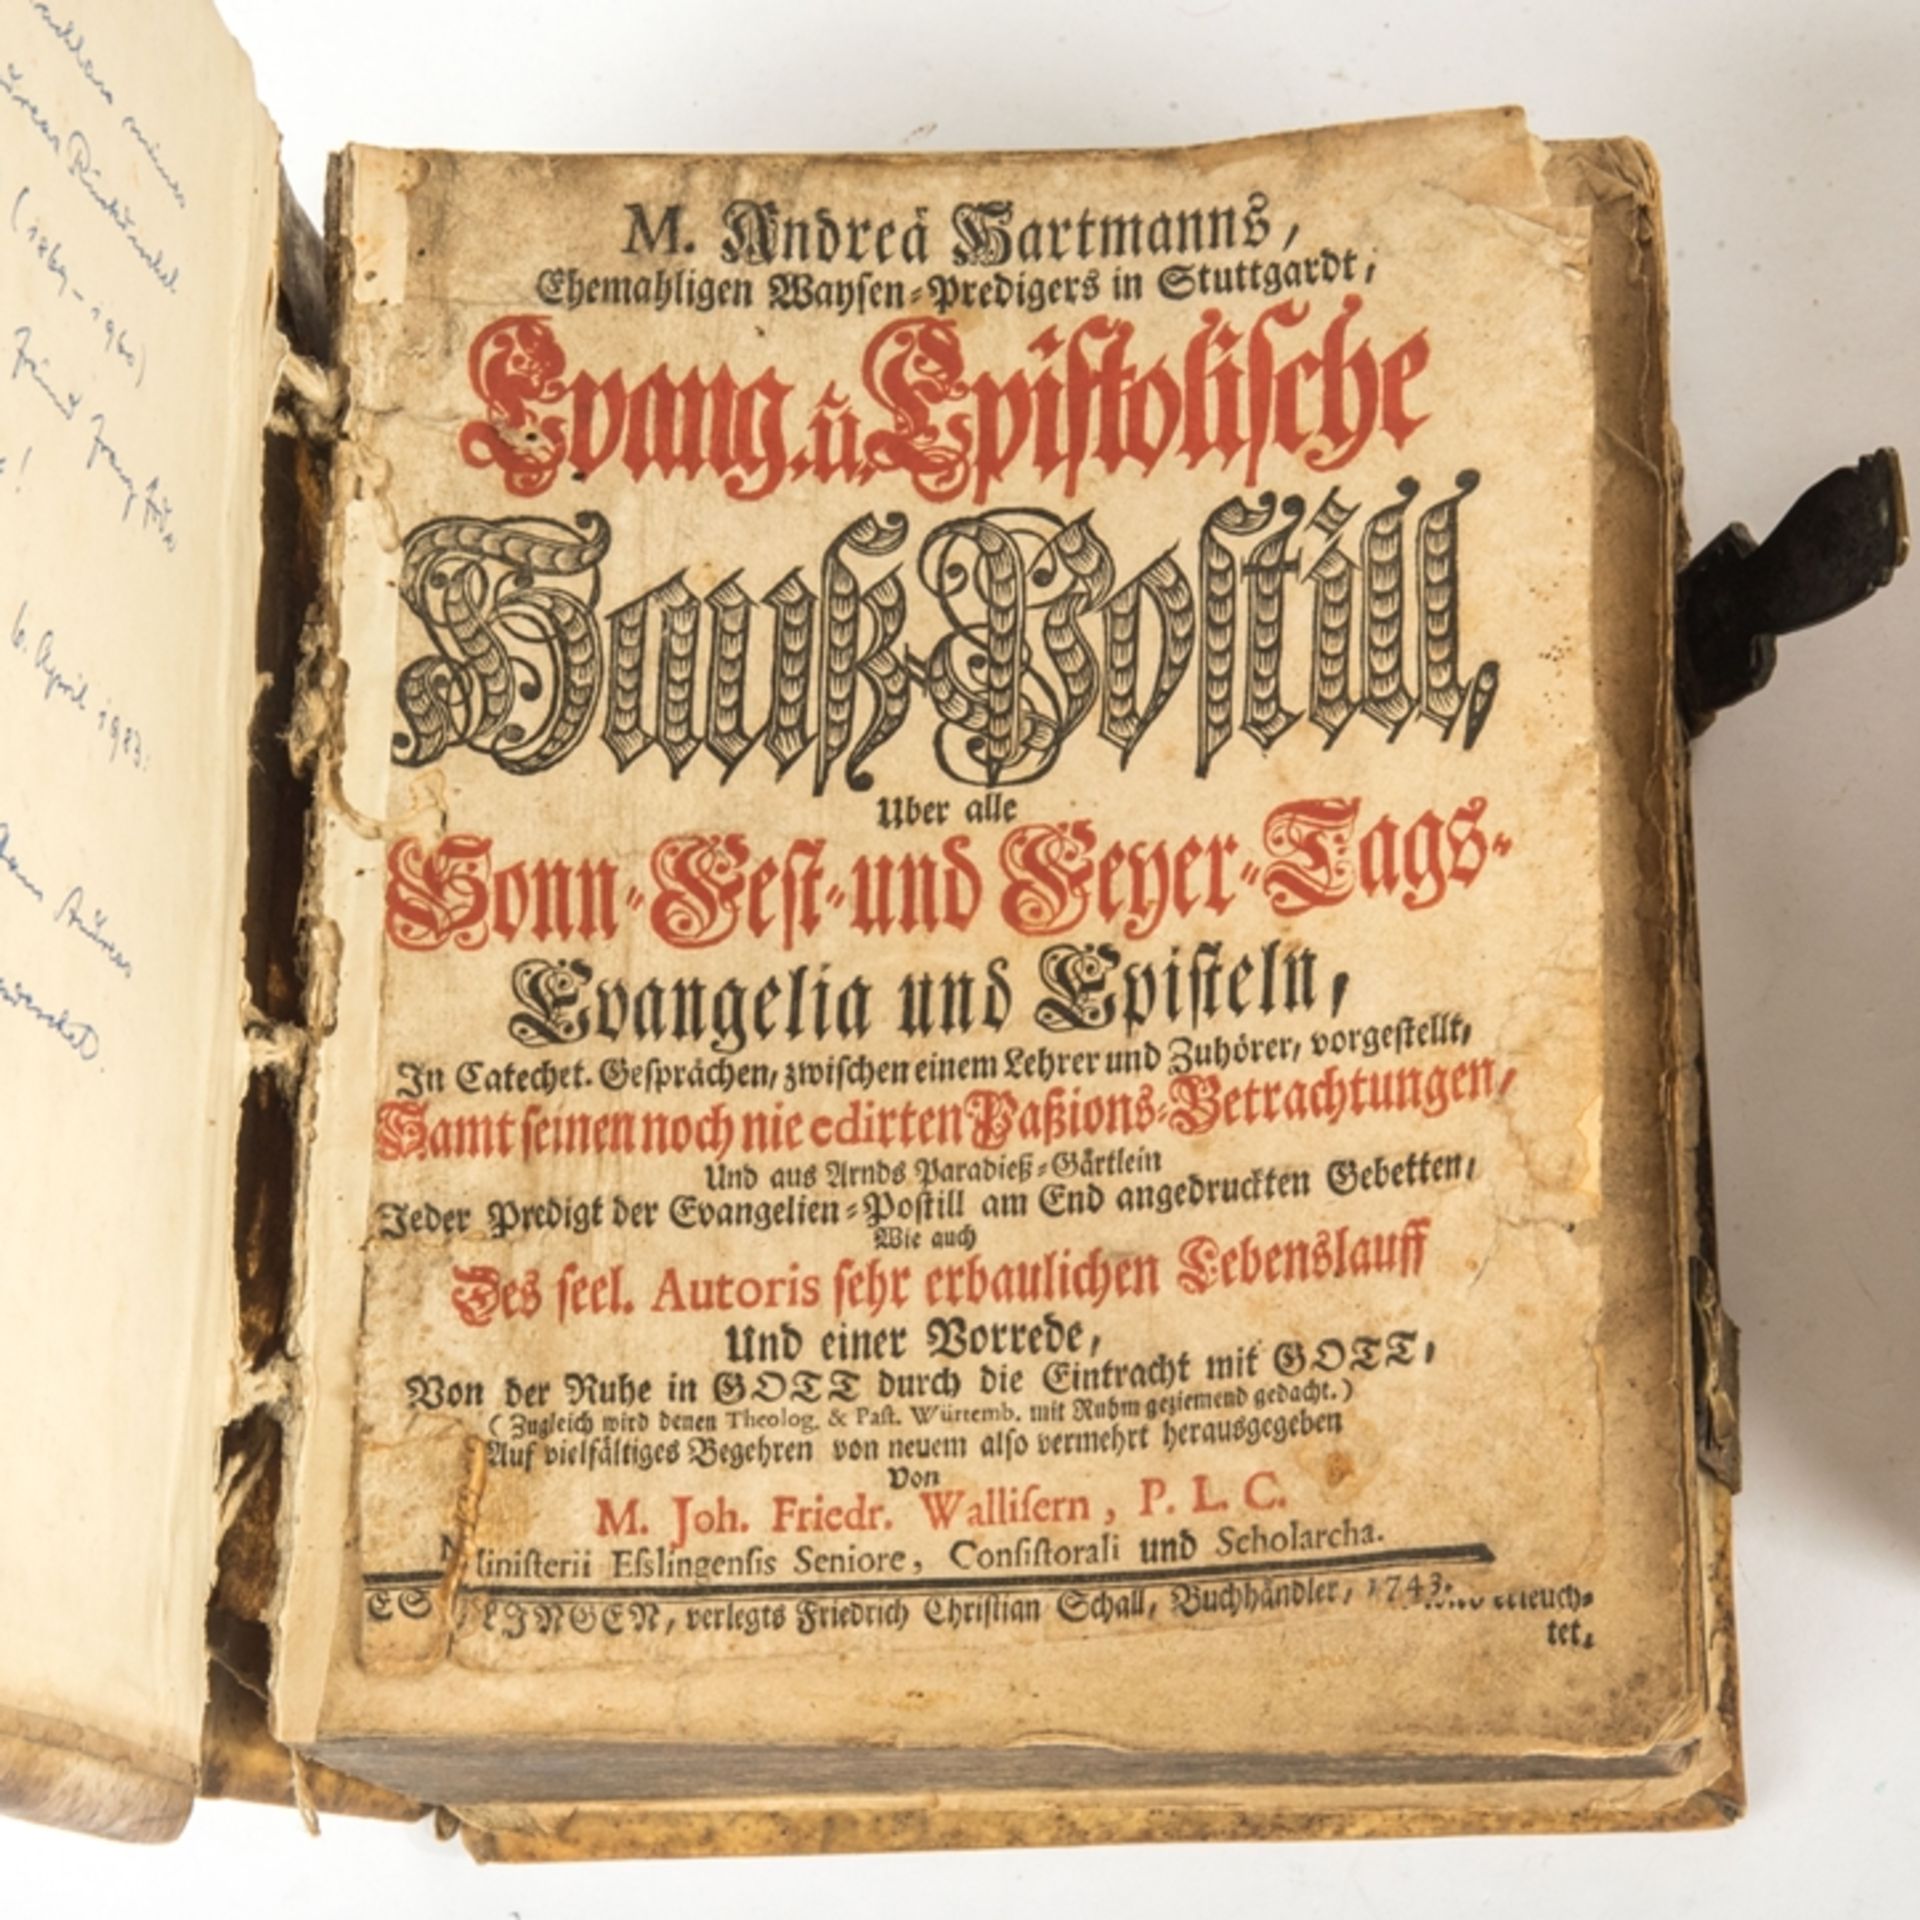 (1869-1960)
6. April 1983.
M. Andreä Hartmanns,
Ehemahligen Waysen-Predigers in Stuttgardt,
Evang. u. Epistolische
Hauß-Postill,
Uber alle
Sonn-Fest-und Feyer-Tags-
Evangelia und Episteln,
In Catechet. Gesprächen, zwischen einem Lehrer und Zuhörer, vorgestellt,
Samt seinen noch nie edirten Paßions-Betrachtungen,
Und aus Arnds Paradieß-Gärtlein
Jeder Predigt der Evangelien-Postill am End angedruckten Gebetten,
Wie auch
Des seel. Autoris sehr erbaulichen Lebenslauff
Und einer Vorrede,
Von der Ruhe in GOTT durch die Eintracht mit GOTT,
(Zugleich wird denen Theolog. & Past. Würtemb. mit Ruhm geziemend gedacht.)
Auf vielfältiges Begehren von neuem also vermehrt herausgegeben
Von
M. Joh. Friedr. Wallisern, P. L. C.
Ministerii Esslingensis Seniore, Consistorali und Scholarcha.
ESSLINGEN, verlegts Friedrich Christian Schall, Buchhändler, 1743.
tet,